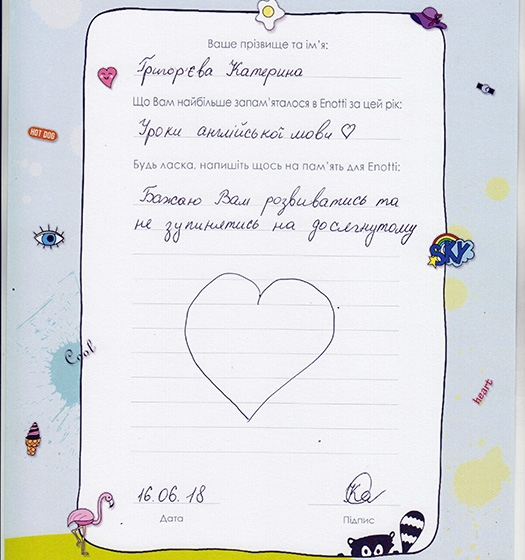 Ваше прізвище та ім'я:
Григор'єва Катерина
Що Вам найбільше запам'яталося в Enotti за цей рік:
Уроки англійської мови ♡
Будь ласка, напишіть щось на пам'ять для Enotti:
Бажаю Вам розвиватись та
не зупинятись на досягнутому
HOT DOG
SKY
Cool
heart
16.06.18
Дата
Підпис